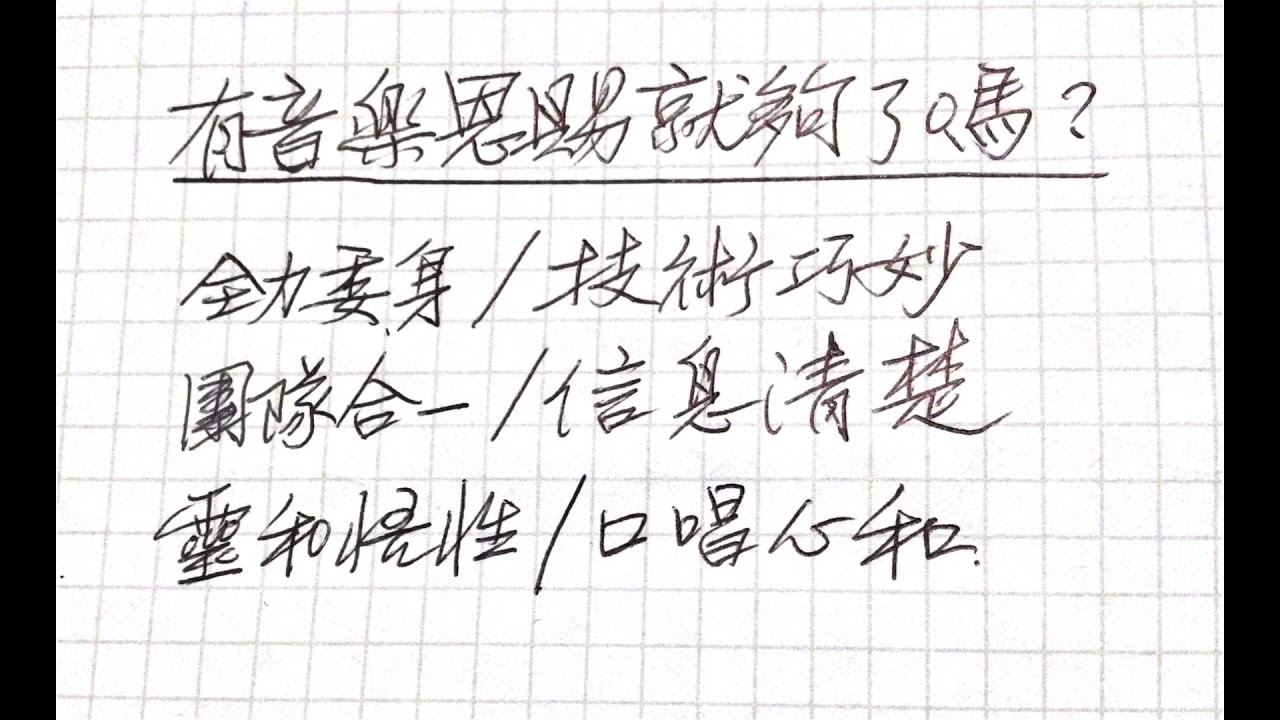 有音樂恩賜就夠了嗎？
全力委身/技術巧妙
團隊合一/信息清楚
靈和悟性/口唱心和.